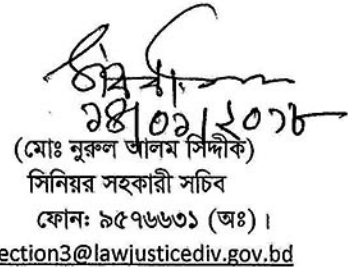 ১৪/০১/২০১৮
(মোঃ নুরুল আলম সিদ্দীক)
সিনিয়র সহকারী সচিব
ফোন: ৯৫৭৬৬৩১ (অঃ) ।
ection3@lawjusticediv.gov.bd